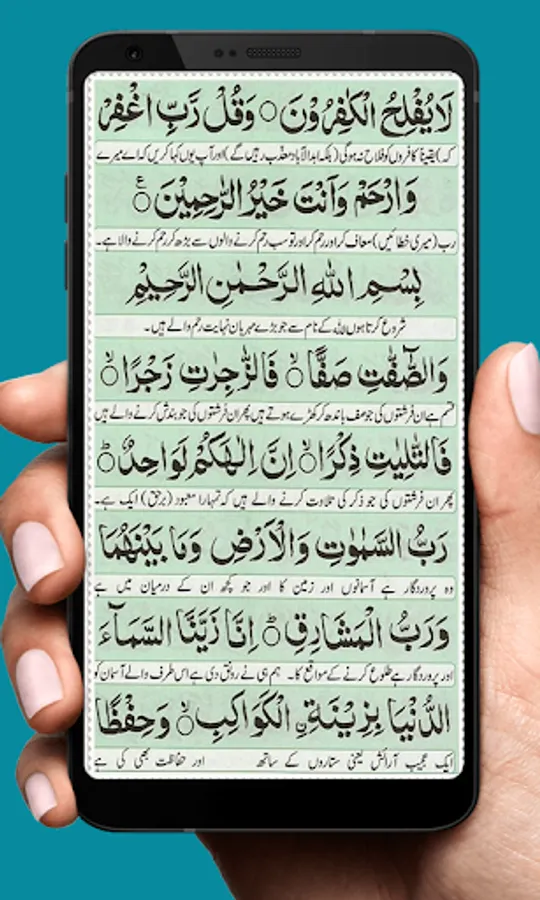 لَا يُفْلِحُ الْكٰفِرُوْنَ ○ وَقُلْ رَّبِّ اغْفِرْ
کہ) یقیناً کافروں کو فلاح نہ ہوگی (بلکہ ابدالآباد معذب رہیں گے) اور آپ یوں کہا کریں کہ اے میرے
وَارْحَمْ وَاَنْتَ خَيْرُ الرّٰحِمِيْنَ ○ ع
رب (میری خطائیں) معاف کر اور رحم کر اور تو سب رحم کرنے والوں سے بڑھ کر رحم کرنے والا ہے۔
بِسْمِ اللهِ الرَّحْمٰنِ الرَّحِيْمِ
شروع کرتا ہوں اللہ کے نام سے جو بڑے مہربان نہایت رحم والے ہیں۔
وَالصّٰٓفّٰتِ صَفًّا ○ۙ فَالزّٰجِرٰتِ زَجْرًا ○ۙ
قسم ہے ان فرشتوں کی جو صف باندھ کر کھڑے ہوتے ہیں پھر ان فرشتوں کی جو بندش کرنے والے ہیں
فَالتّٰلِيٰتِ ذِكْرًا ○ۙ اِنَّ اِلٰهَكُمْ لَوَاحِدٌ ○ؕ
پھر ان فرشتوں کی جو ذکر کی تلاوت کرنے والے ہیں کہ تمہارا معبود (برحق) ایک ہے۔
رَبُّ السَّمٰوٰتِ وَالْاَرْضِ وَمَا بَيْنَهُمَا
وہ پروردگار ہے آسمانوں اور زمین کا اور جو کچھ ان کے درمیان میں ہے
وَرَبُّ الْمَشَارِقِ ○ؕ اِنَّا زَيَّنَّا السَّمَآءَ
اور پروردگار ہے طلوع کرنے کے مواقع کا۔ ہم ہی نے رونق دی ہے اس طرف والے آسمان کو
الدُّنْيَا بِزِيْنَةِ ِۨالْكَوَاكِبِ ○ۙ وَحِفْظًا
ایک عجیب آرائش یعنی ستاروں کے ساتھ اور حفاظت بھی کی ہے